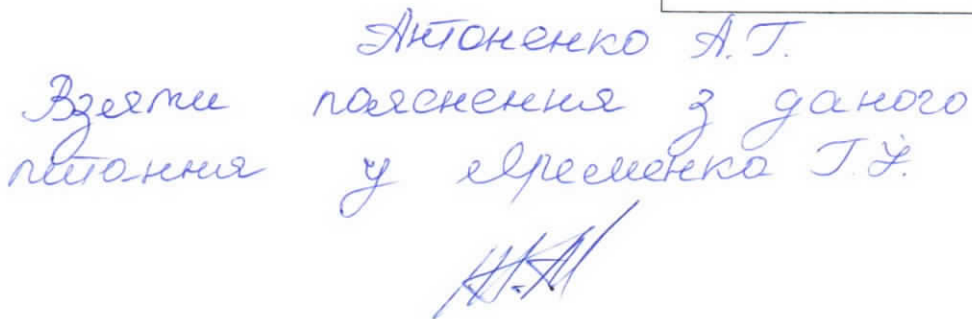 Антоненко А.Г.
Взяти пояснення з даного
питання у Яременка Г.У.